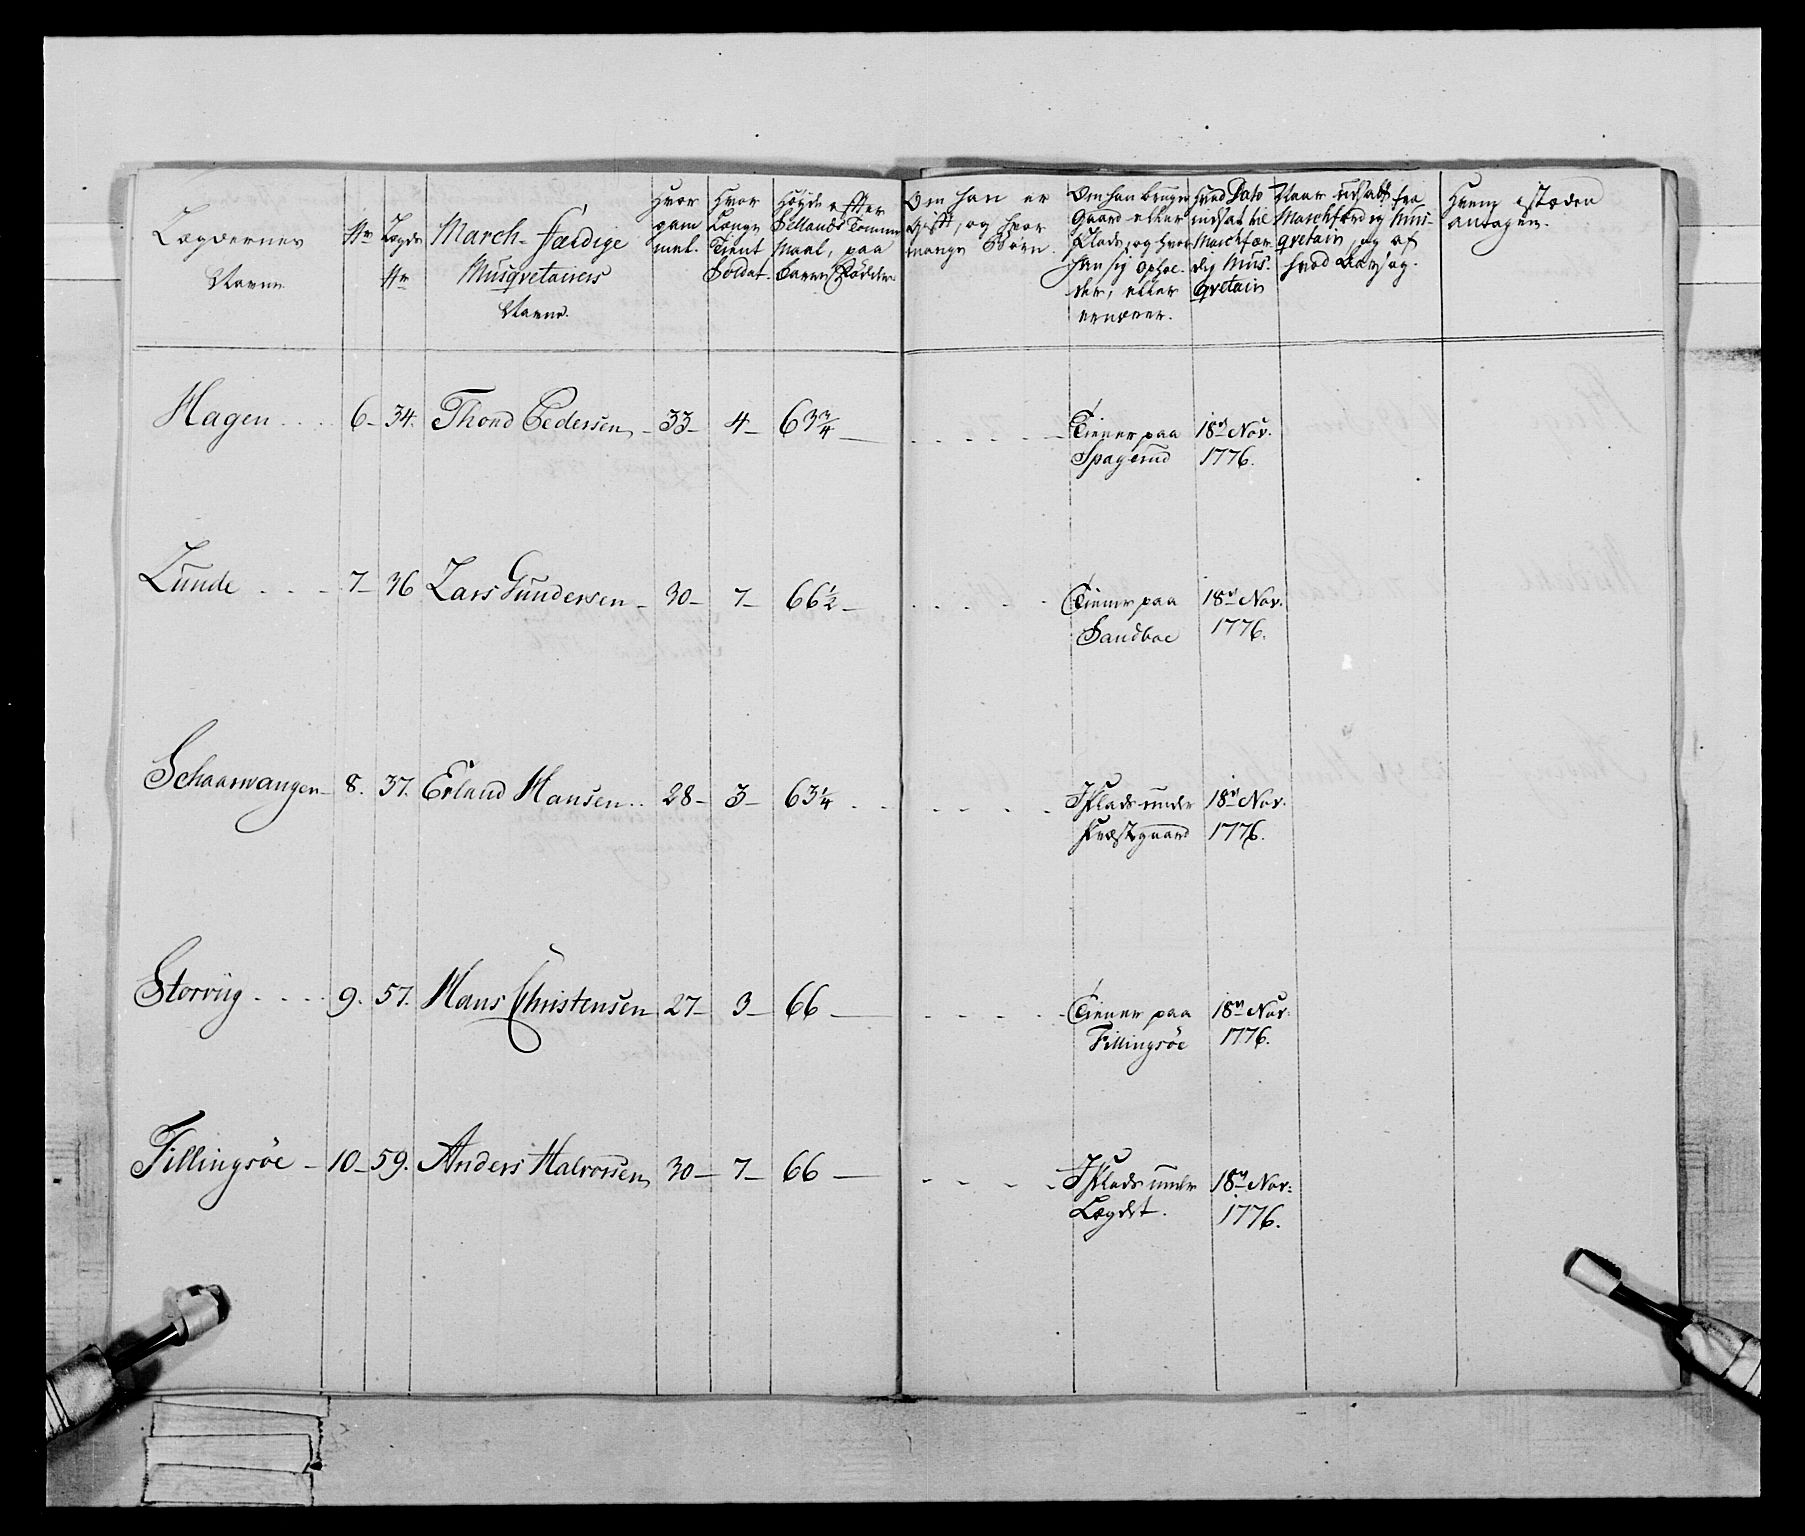 Lægdernes Navne
Nr
Lægds Nr
March-færdige Musqvetairers Navne.
Hvor gammel.
Hvor Længe Tient Soldat.
Høyde effter Sellands Tomme Maal, paa Barre Fødder.
Om han er Gift, og hvor mange Børn.
Om han bruger Gaard eller Plads, og hvor han sig ophol- der, eller ernærer.
Hvad Dato indsat til Marchfær- dig Mus- qvetair
Naar udsatt fra Marchfærdig Mus- qvetair, og af hvad Aarsag.
Hvem istæden antagen.
Hagen . . . . 6- 34. Thord Pedersen - 33- 4- 63¾ - - - - - Tiener paa Spagerud 18de Nov. 1776.
Lunde . . . - 7- 36 Lars Gundersen - 30- 7- 66½ - . . . . - Tiener paa Sandboe 18de Nov. 1776.
Schaarwangen- 8. 37. Erland Hansen . . 28- 3- 63¼ . . - . - . Plads under Præstgaard 18de Nov. 1776.
Storviig . . . . 9. 57. Hans Christensen 27- 3- 66 - - - - - Tiener paa Fillingsøe 18de Nov: 1776.
Fillingsøe - 10- 59. Anders Halvorsen 30- 7- 66 - - - - - Plads under Lægdet. 18de Nov: 1776.